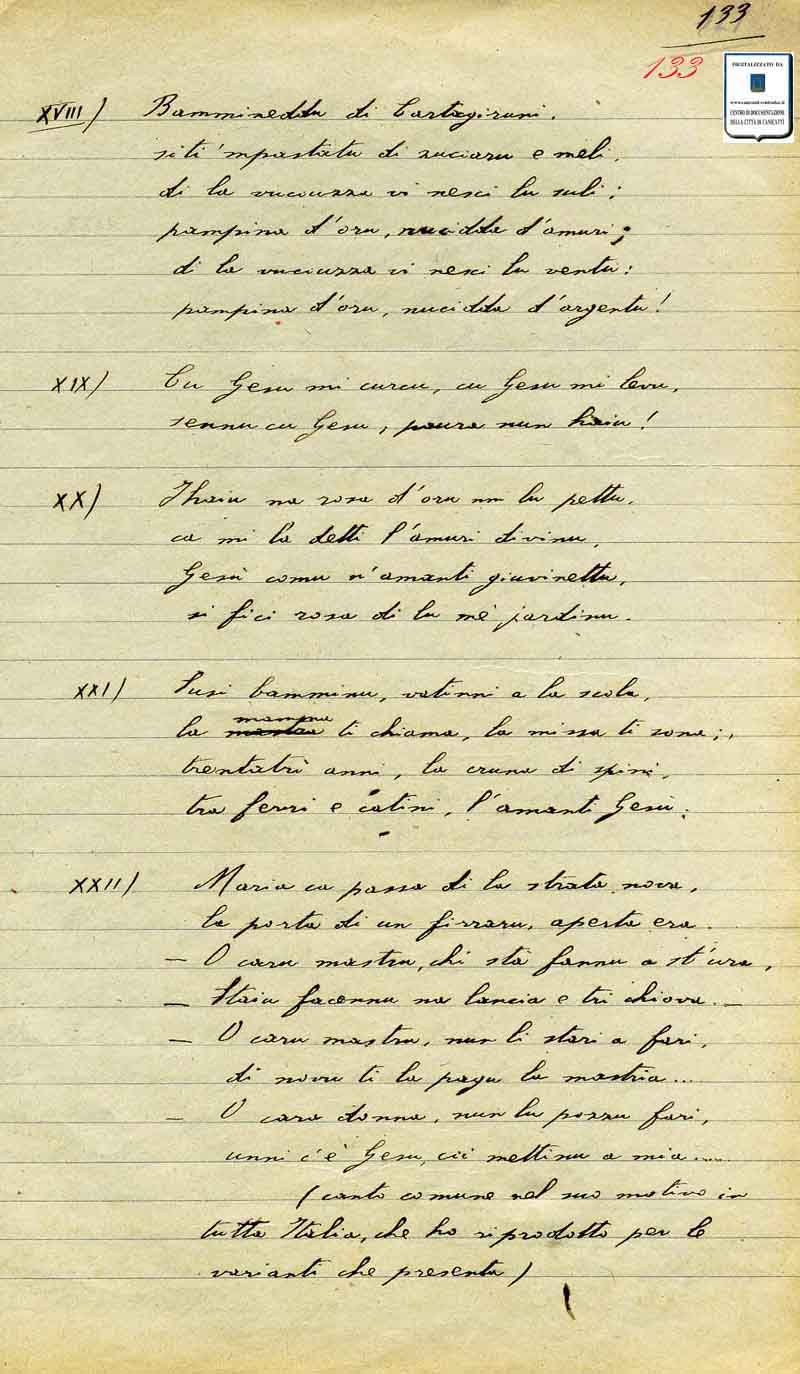 133
133
DIGITALIZZATO DA
CENTRO DI DOCUMENTAZIONE
DELLA CITTÀ DI CANICATTÌ
XVIII) Bammineddu di Cartagiruni,
si ti 'mpastatu di zuccaru e meli,
di la vuccuzza vi nesci lu suli;
pampina d'oru, nucidda d'amuri;
di la vuccuzza vi nesci lu ventu:
pampina d'oru, nucidda d'argentu!
XIX) Cu Gesu mi curcu, cu Gesu mi levu,
sennu cu Gesu, paura nun haiu!
XX) Ihaiu na rosa d'oru nni lu pettu,
ca mi la detti l'amuri divinu,
Gesù comu n'amanti giuvinettu,
si fici rosa di lu mè jardinu.
XXI) Susi bamminu, vatinni a la scola,
la mamma ti chiama, la missa ti sona;
trentatrì anni, la cruna di spini,
tra ferri e catini, l'amanti Gesù;
XXII) Maria ca passa di la strata nova,
la porta di un firraru, aperta era.
— O caru mastru, chi stà fannu a st'ura,
— Staiu facennu na lancia e tri chiova. —
— O caru mastru, nun li stari a fari,
di novu ti la pagu la mastria...
— O cara donna, nun lu pozzu fari,
unni c'è Gesu, cci mettinu a mia....
(canto comune nel suo motivo in
tutta Italia, che ho riprodotto per le
varianti che presenta)